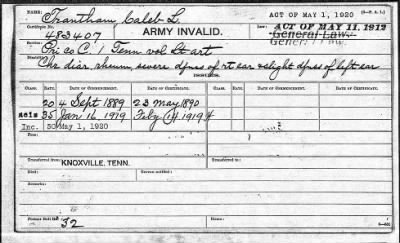 NAME: Trantham, Caleb L. ACT OF MAY 1, 1920
Certificate No. ARMY INVALID. ACT OF MAY 11, 1912
483407 General Law.
Pri co C. 1 Tenn vol Lt art
Chr diar, rheum, severe dfnes of rt ear & slight dfnes of left ear
CLASS. DATE OF COMMENCEMENT. DATE OF CERTIFICATE. CLASS. DATE OF COMMENCEMENT. DATE OF CERTIFICATE.
20 4 Sept 1889 23 May 1890
35 Jan 16, 1919 Feby 1919
Inc. 50 May 1, 1920
Transferred from KNOXVILLE, TENN. Transferred to
Died Died
Notified Notified
32